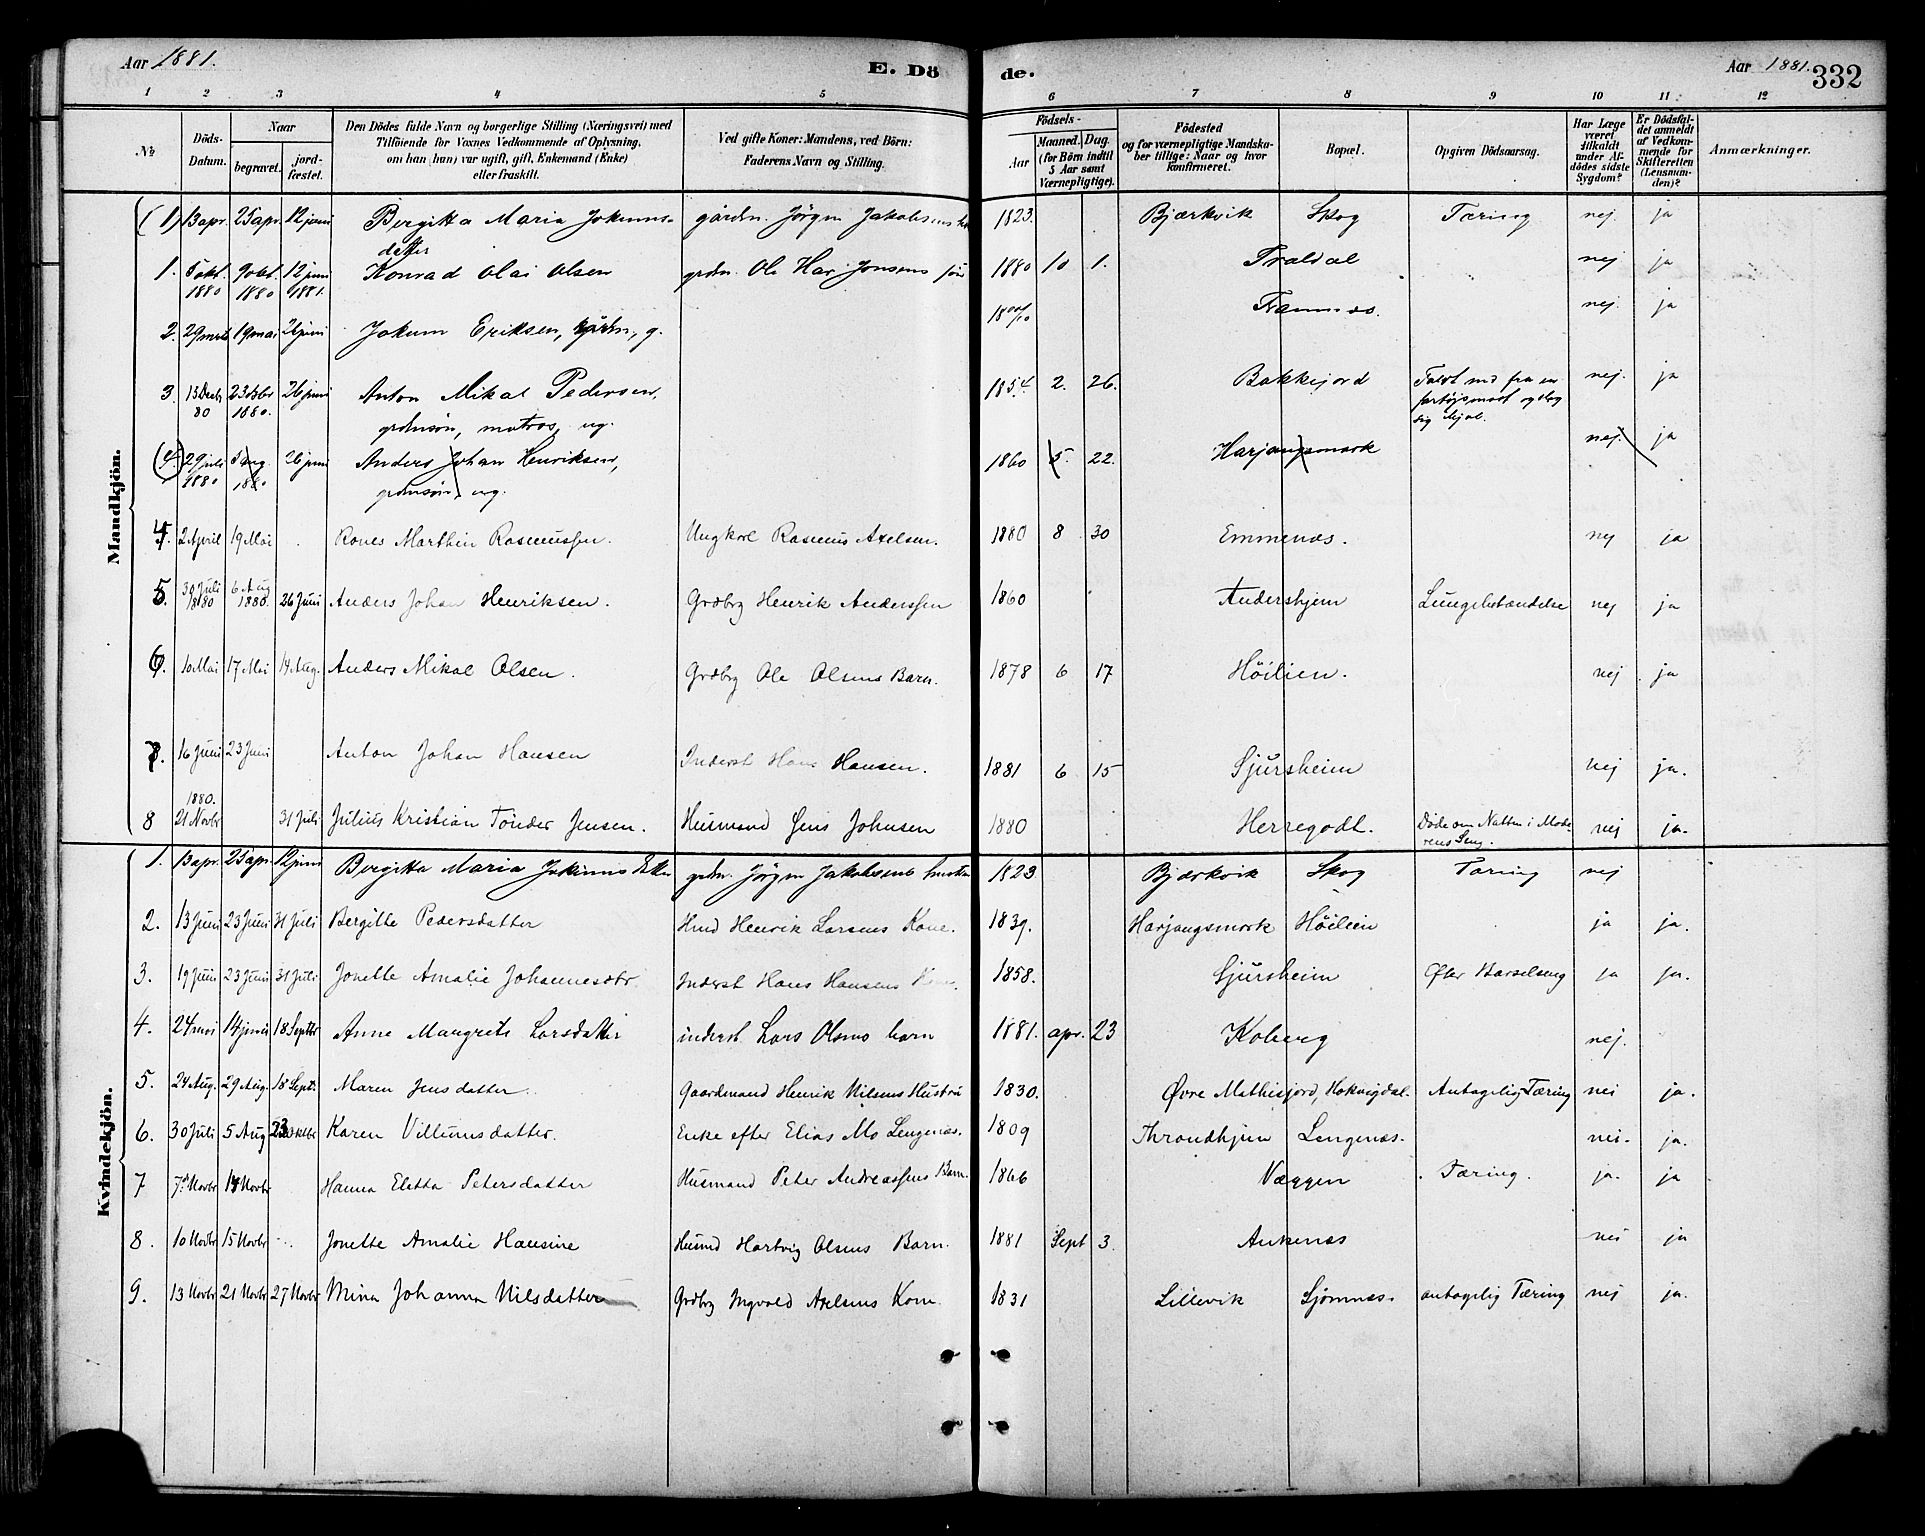 Aar 1881. E. Dö de. Aar 1881. 332
1 2 3 4 5 6 7 8 9 10 11 12
№ Döds-Datum. Naar begravet. jordfæstet. Den Dödes fulde Navn og borgerlige Stilling (Næringsvei) med Tilföiende for Voxnes Vedkommende af Oplysning, om han (hun) var ugift, gift, Enkemand (Enke) eller fraskilt. Ved gifte Koner: Mandens, ved Börn: Faderens Navn og Stilling. Födsels- Aar Maaned. Dag. (for Börn indtil 5 Aar samt Værnepligtige). Födested og for værnepligtige Mandskaber tillige: Naar og hvor konfirmeret. Bopæl. Opgiven Dödsaarsag. Har Læge været tilkaldt under Afdödes sidste Sygdom? Er Dödsfaldet anmeldt af Vedkommende for Skifteretten (Lensmanden)? Anmærkninger.
Mandkjön.
(1) 13 apr. 25 apr. 12 juni Bergitta Maria Jokums- gårdm. Jörgen Jakobsens 1823. Bjærkvik Skog Tæring nej ja
datter
1. 5 okt. 1880 9 okt. 1880 12 juni 1881. Konrad Olai Olsen grdm. Ole Har. Jensens sön 1880 10 1. Traldal nej ja
2. 29 mrts 19 mai 26 juni Jokum Eriksen, gårdm, g. Trænnæs. nej. ja
3. 13 Decbr 80 23 Decbr 1880. 26 juni Anton Mikal Pedersen, 1854 2. 26. Bakkejord Faldt ned fra en fartøjsmast og slog sig ihjel. nej. ja
grdmsön, matros, ug.
(4) 29 juli 1880 5 aug. 1880 26 juni Anders Johan Henriksen, 1860 5. 22. Harjangsmark nej. ja
grdmsön, ug.
4. 2 April 19 Mai Rones Marthin Rasmussen. Ungkarl Rasmus Axelsen. 1880 8 30 Emmenæs. nej ja
5. 30 Juli 1880 6 Aug 1880. 26 Juni Anders Johan Henriksen. Grdbrg Henrik Anderssen 1860 Andershjem Lungebetændelse nej ja
6. 10 Mai 17 Mai 14 Aug. Anders Mikal Olsen. Grdbrg Ole Olsens Barn. 1878 6 17 Höilien. nej ja
7. 16 Juni 23 Juni Anton Johan Hansen Inderst Hans Hansen. 1881 6 15 Sjursheim nej ja.
8 1880. 21 Novbr 31 Juli Julius Kristian Tönder Jensen. Husmand Jens Johnsen 1880 Herregodt. Döde om Natten i Moderens Seng. nej ja.
Kvindekjön.
1. 13 apr. 25 apr. 12 juni Bergitta Maria Jokums datter grdm. Jörgen Jakobsens hustru 1823 Bjærkvik Skog Tæring nej
2. 13 Juni 23 Juni 31 Juli Bergitte Pedersdatter Hmd Henrik Larsens Kone. 1839. Harjangsmark Höilien ja ja.
3. 19 Juni 23 Juni 31 Juli Jonette Amalie Johannesdtr. Inderst Hans Hansens Kone. 1858. Sjursheim Efter Barselseng ja ja.
4. 24 mai 14 juni 18 Septbr Anne Margrete Larsdatter inderst. Lars Olsens barn 1881. apr. 23 Koberg nej.
5. 24 Aug. 29 Aug. 18 Sept. Maren Jensdatter. Gaardmand Henrik Nilsens Hustru 1830. Øvre Mathisjord, Hokvigdal. Antagelig Tæring nei ja.
6. 30 Juli 5 Aug 23 Oktbr Karen Villumsdatter. Enke efter Elias Mo Lengenæs. 1809 Throndhjem Lengenæs. nei. ja.
7 7. Novbr 14 Novbr Hanna Eletta Petersdatter Husmand Peter Andreassens Barn. 1866 Væggen Tæring. ja. ja
8. 10 Novbr 15 Novbr Jonette Amalie Hansine Husmd Hartvig Olsens Barn. 1881 Sept 3. Ankenæs nei ja
9. 13 Novbr 21 Novbr 27 Novbr Mina Johanna Nilsdatter Grdbrg Ingvald Axelsens Kone 1831 Lillevik Sjömnæs. antagelig Tæring nej ja.